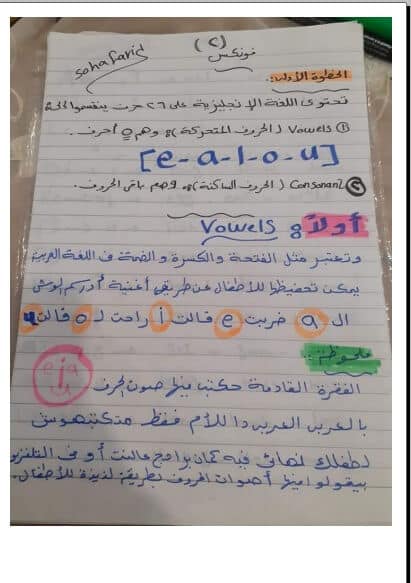 soha farid
فونكس (٢)
الخطوة الأولى:
تحتوى اللغة الإنجليزية على ٢٦ حرف ينقسموا الى
① Vowels (الحروف المتحركة): وهم 5 أحرف.
[e-a-I-o-u]
② Consonant (الحروف الساكنة): وهم باقى الحروف.
أولاً: Vowels
وتعتبر مثل الفتحة والكسرة والضمة فى اللغة العربية
يمكن تحفيظها للأطفال عن طريق أغنية أو رسم الوش
ال a ضربت e قالت i راحت ل o قالت u
ملحوظة:
e i a u
الفقرة القادمة هكتب فيها صوت الحرف
بالعربى العربى دا للأم فقط متكتبهوش
لطفلك نهائى فيه كمان برامج عالنت أو فى التلفزيون
بيقولوا فيها أصوات الحروف بطريقة لذيذة للأطفال.